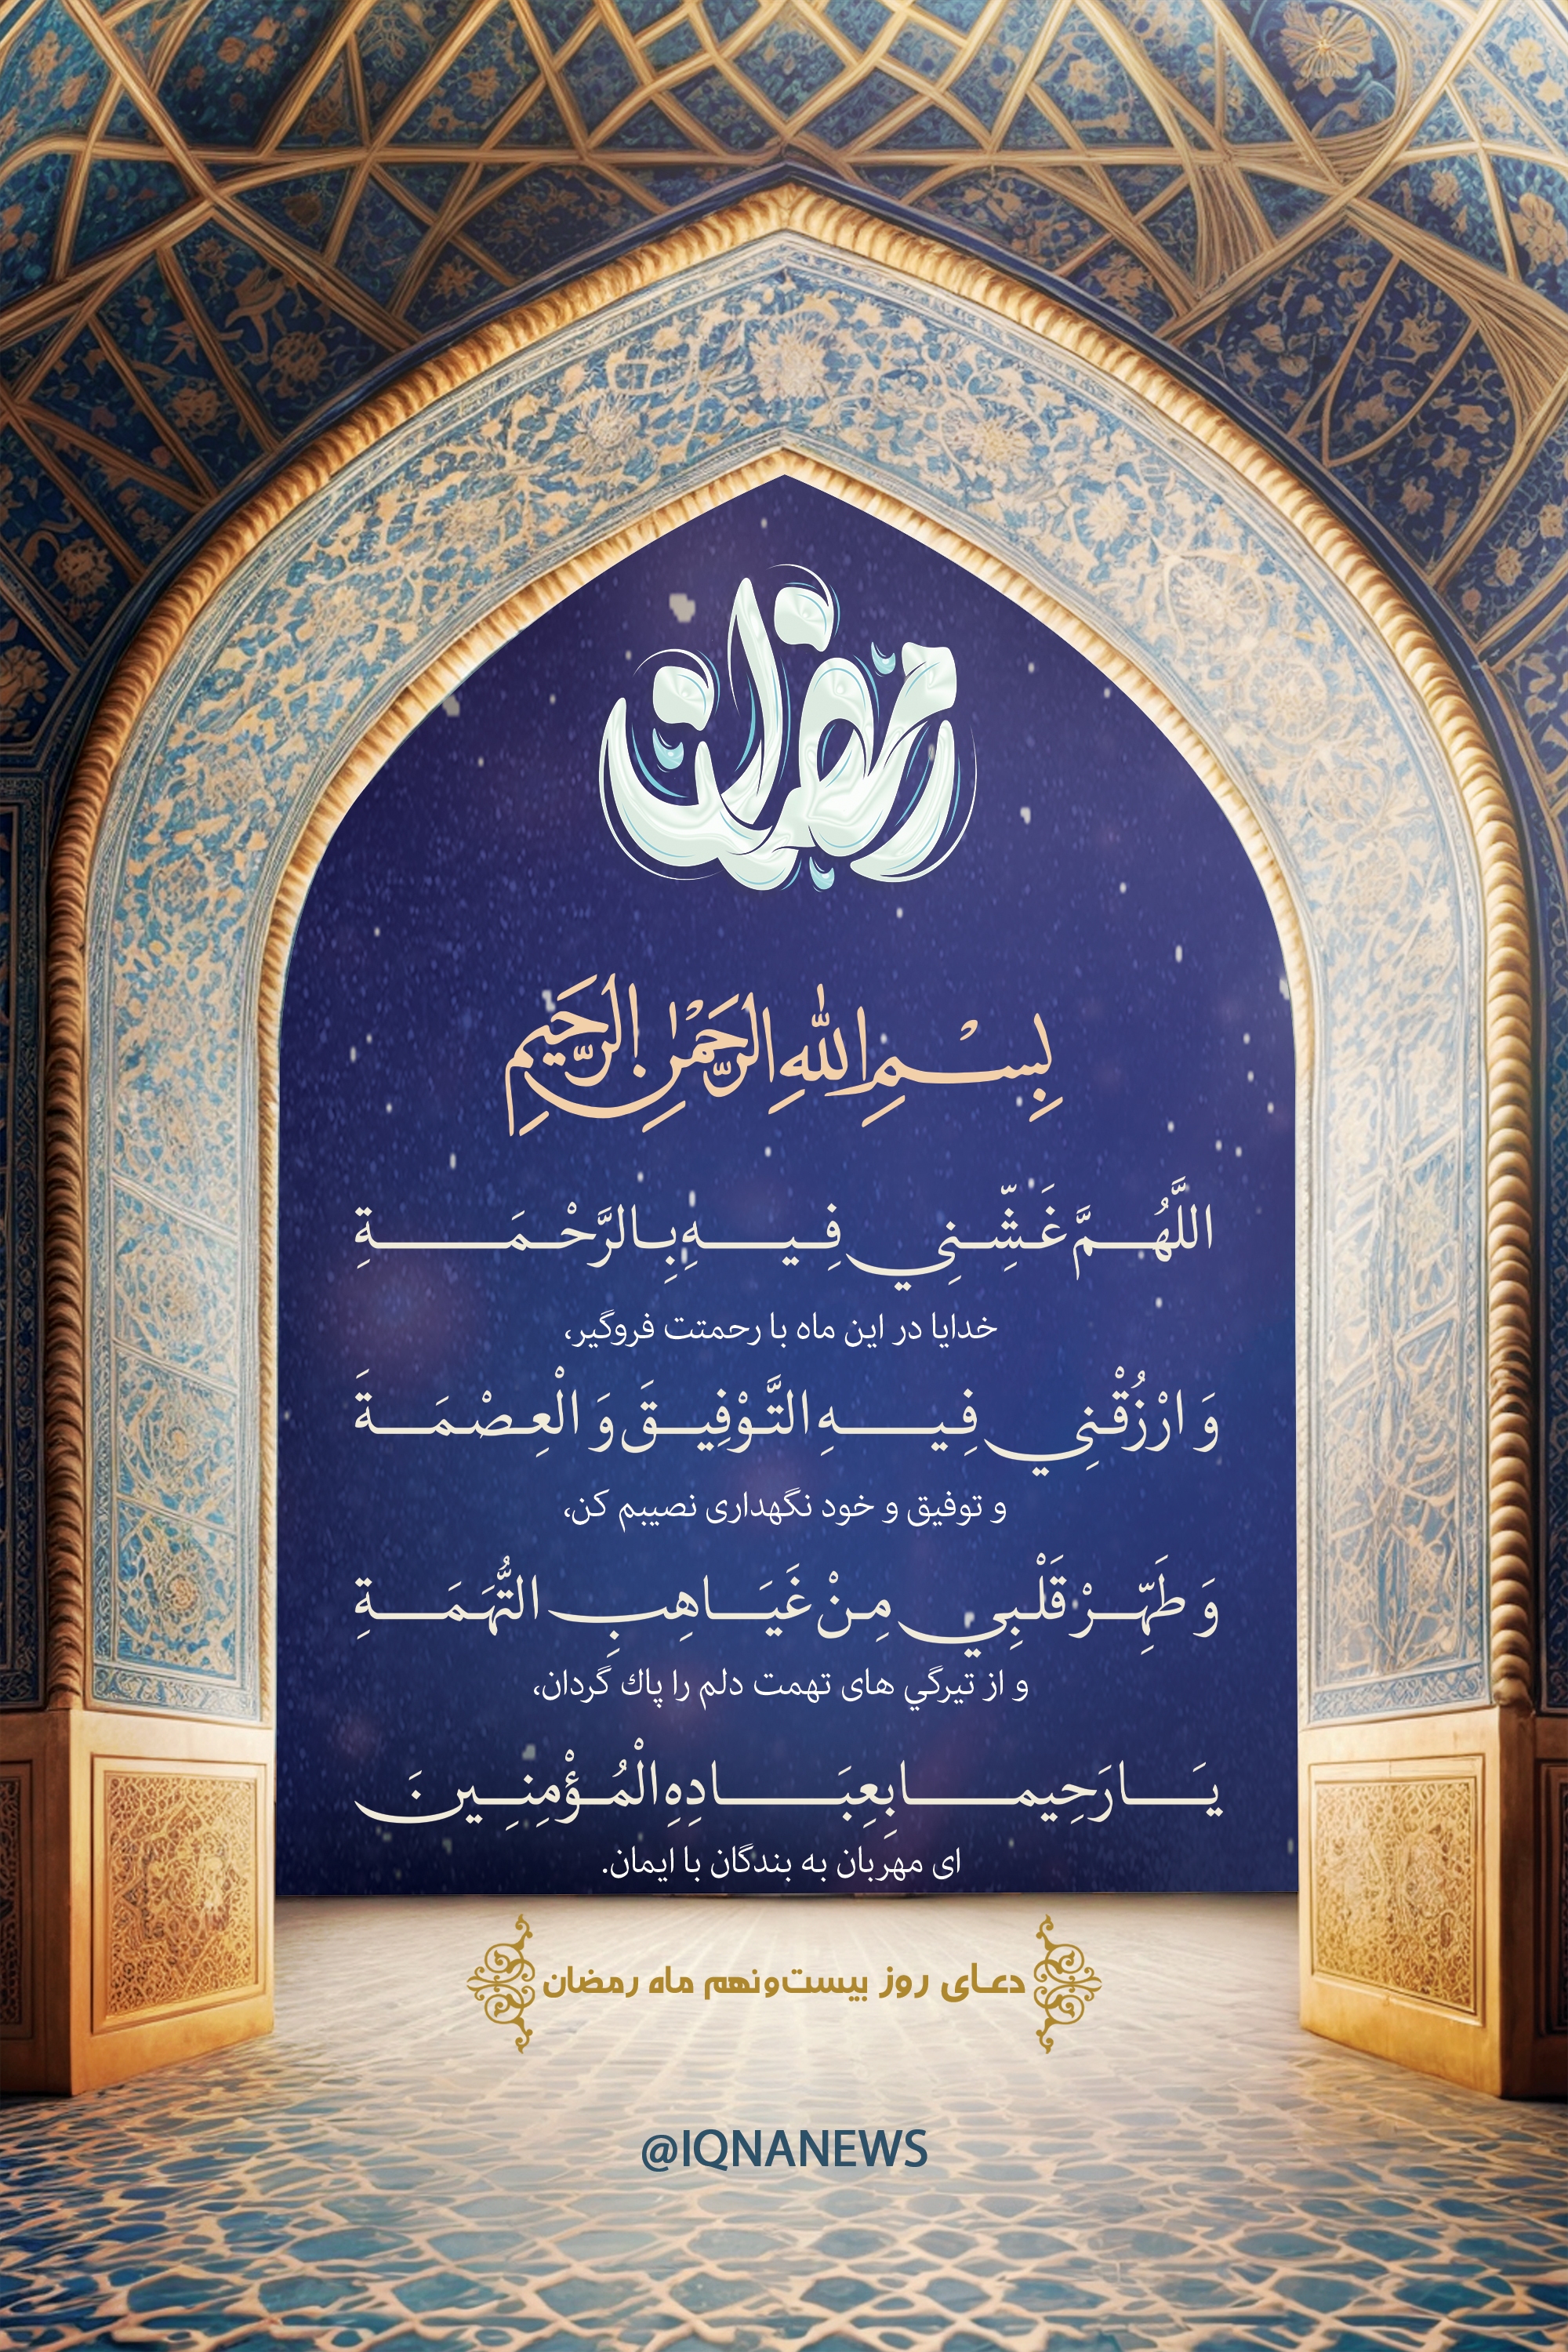 رمضان
بِسْمِ اللهِ الرَّحْمٰنِ الرَّحِيمِ
اللَّهُمَّ غَشِّنِي فِيهِ بِالرَّحْمَةِ
خدایا در این ماه با رحمتت فروگیر،
وَ ارْزُقْنِي فِيهِ التَّوْفِيقَ وَ الْعِصْمَةَ
و توفیق و خود نگهداری نصیبم کن،
وَ طَهِّرْ قَلْبِي مِنْ غَيَاهِبِ التُّهَمَةِ
و از تیرگي های تهمت دلم را پاك گردان،
يَا رَحِيما بِعِبَادِهِ الْمُؤْمِنِينَ
ای مهربان به بندگان با ایمان.
دعای روز بیست‌ونهم ماه رمضان
@IQNANEWS